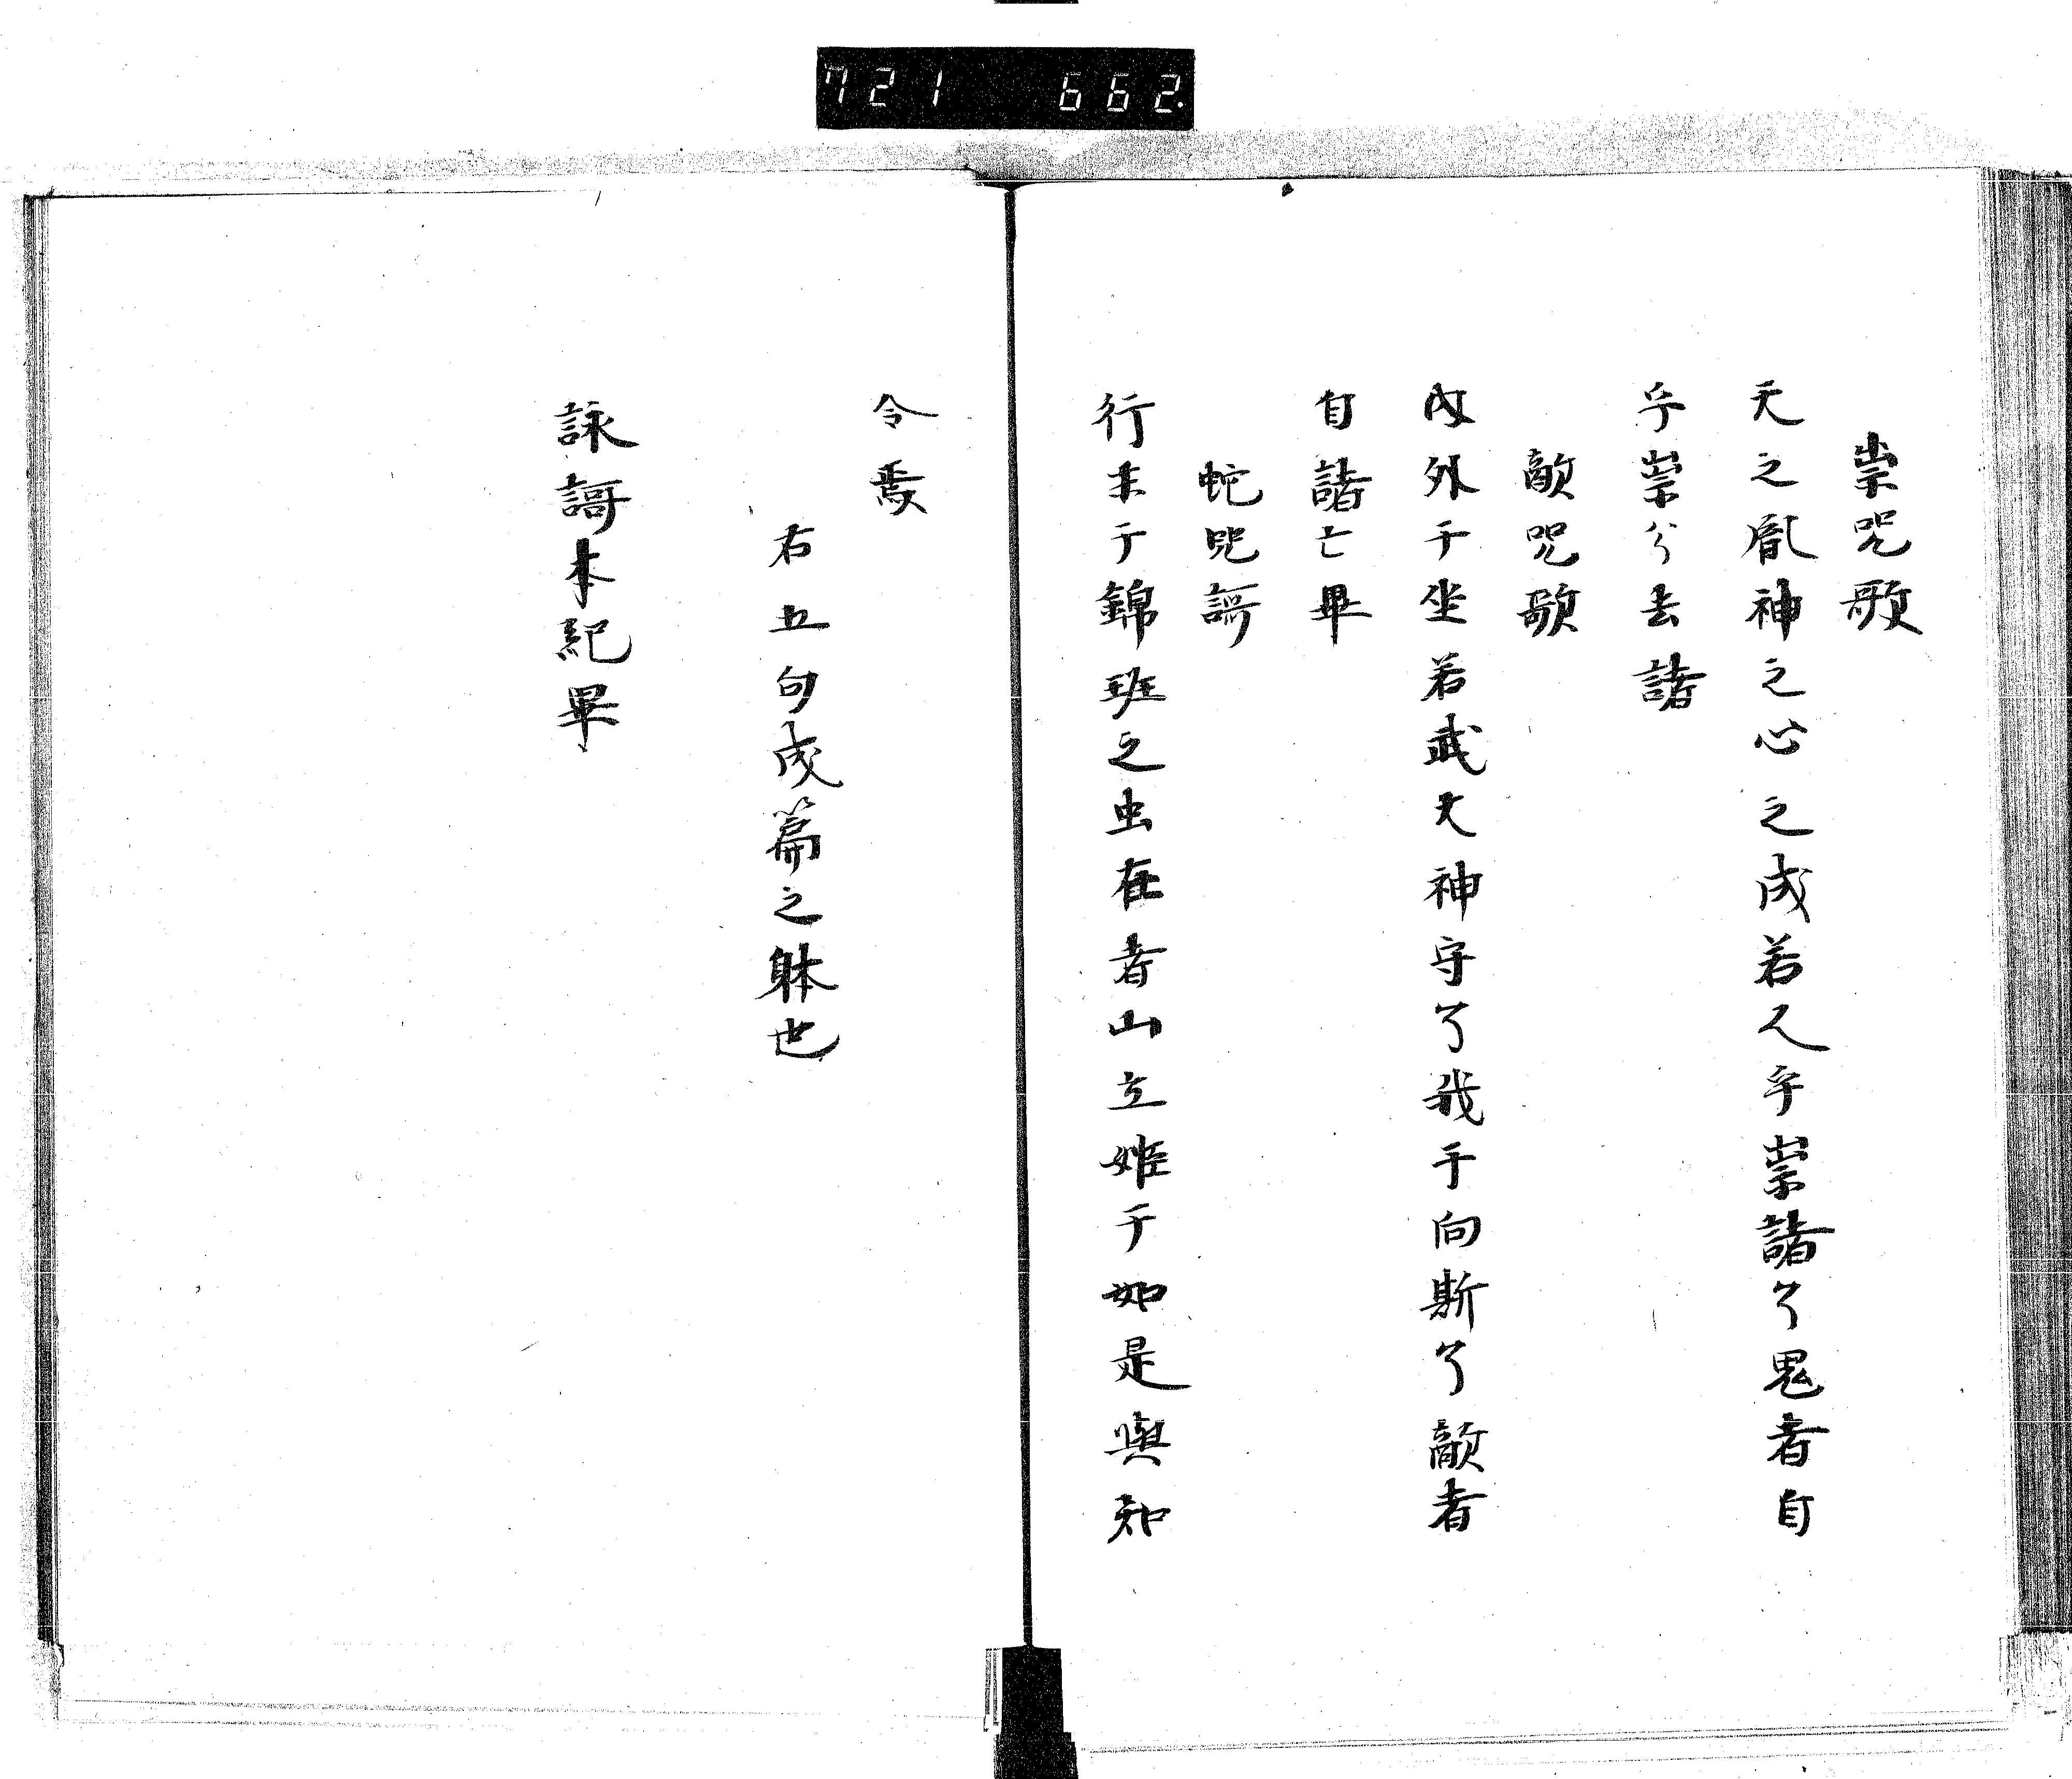 721 662.
祟咒歌
天之胤神之心之成若人乎祟諸兮鬼者自
乎祟兮去諸
敵咒歌
内外于坐若武大神守兮我于向斯兮敵者
自諸亡畢
蛇咒謌
行末于錦班之虫在者山立姫于如是與知
令焉
右五句成篇之躰也
詠謌本紀畢